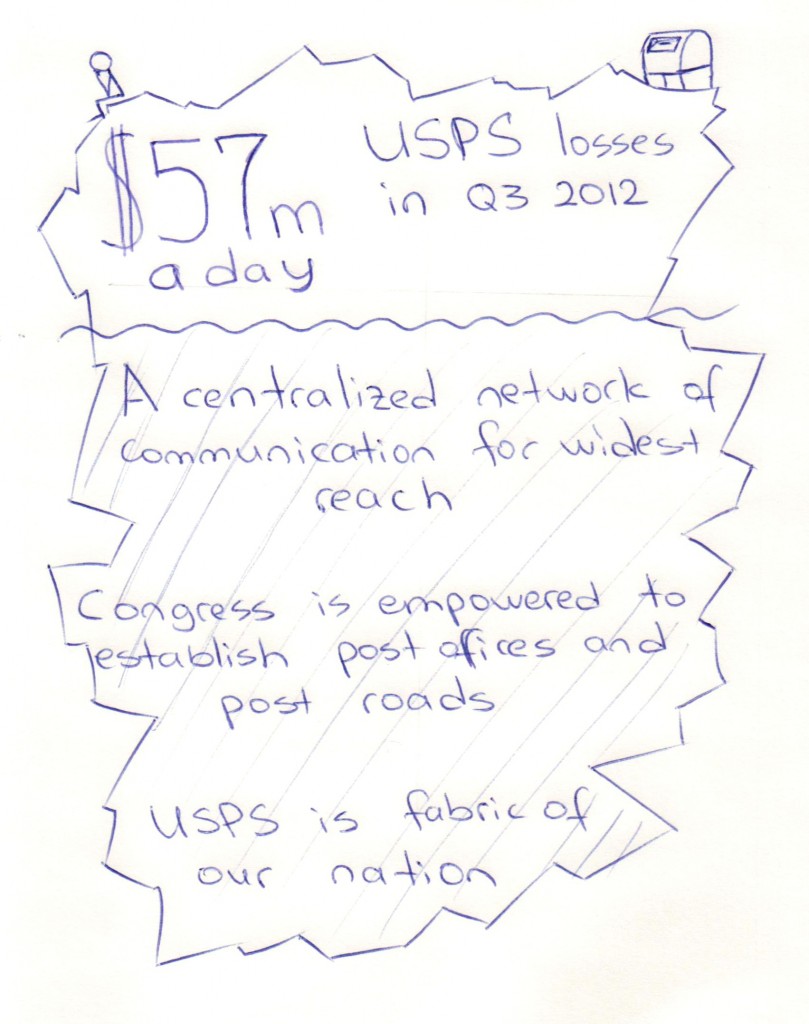 $57m
a day
USPS losses
in Q3 2012
A centralized network of
communication for widest
reach
Congress is empowered to
establish post offices and
post roads
USPS is fabric of
our nation